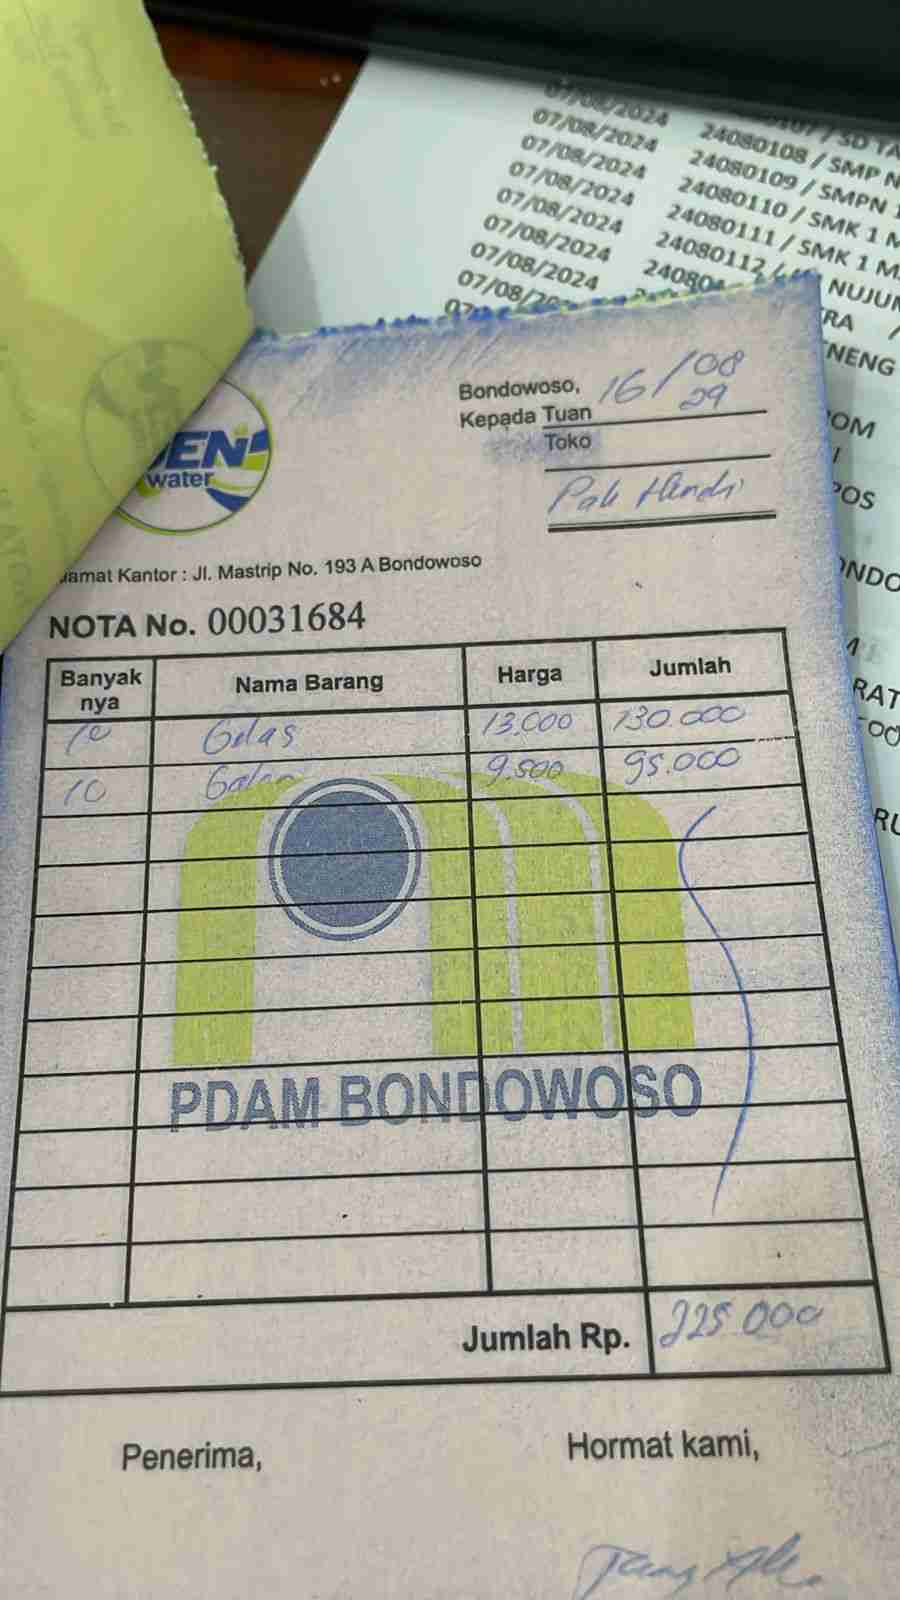 07/08/2024
07/08/2024 24080108 / SMP N
07/08/2024 24080109 / SMPN 1
07/08/2024 24080110 / SMK 1 M
07/08/2024 24080111 / SMK 1 M
07/08/2024 24080112
07/08/2024
NUJUM
KRA /
NENG
OM
POS
ONDO
RAT
Bondowoso, 16/08
29
Kepada Tuan
Toko
Pak Hendi
EN
water
amat Kantor : Jl. Mastrip No. 193 A Bondowoso
NOTA No. 00031684
Banyak nya Nama Barang Harga Jumlah
10 Gelas 13.000 130.000
10 Galon 9.500 95.000
PDAM BONDOWOSO
Jumlah Rp. 225.000
Penerima, Hormat kami,